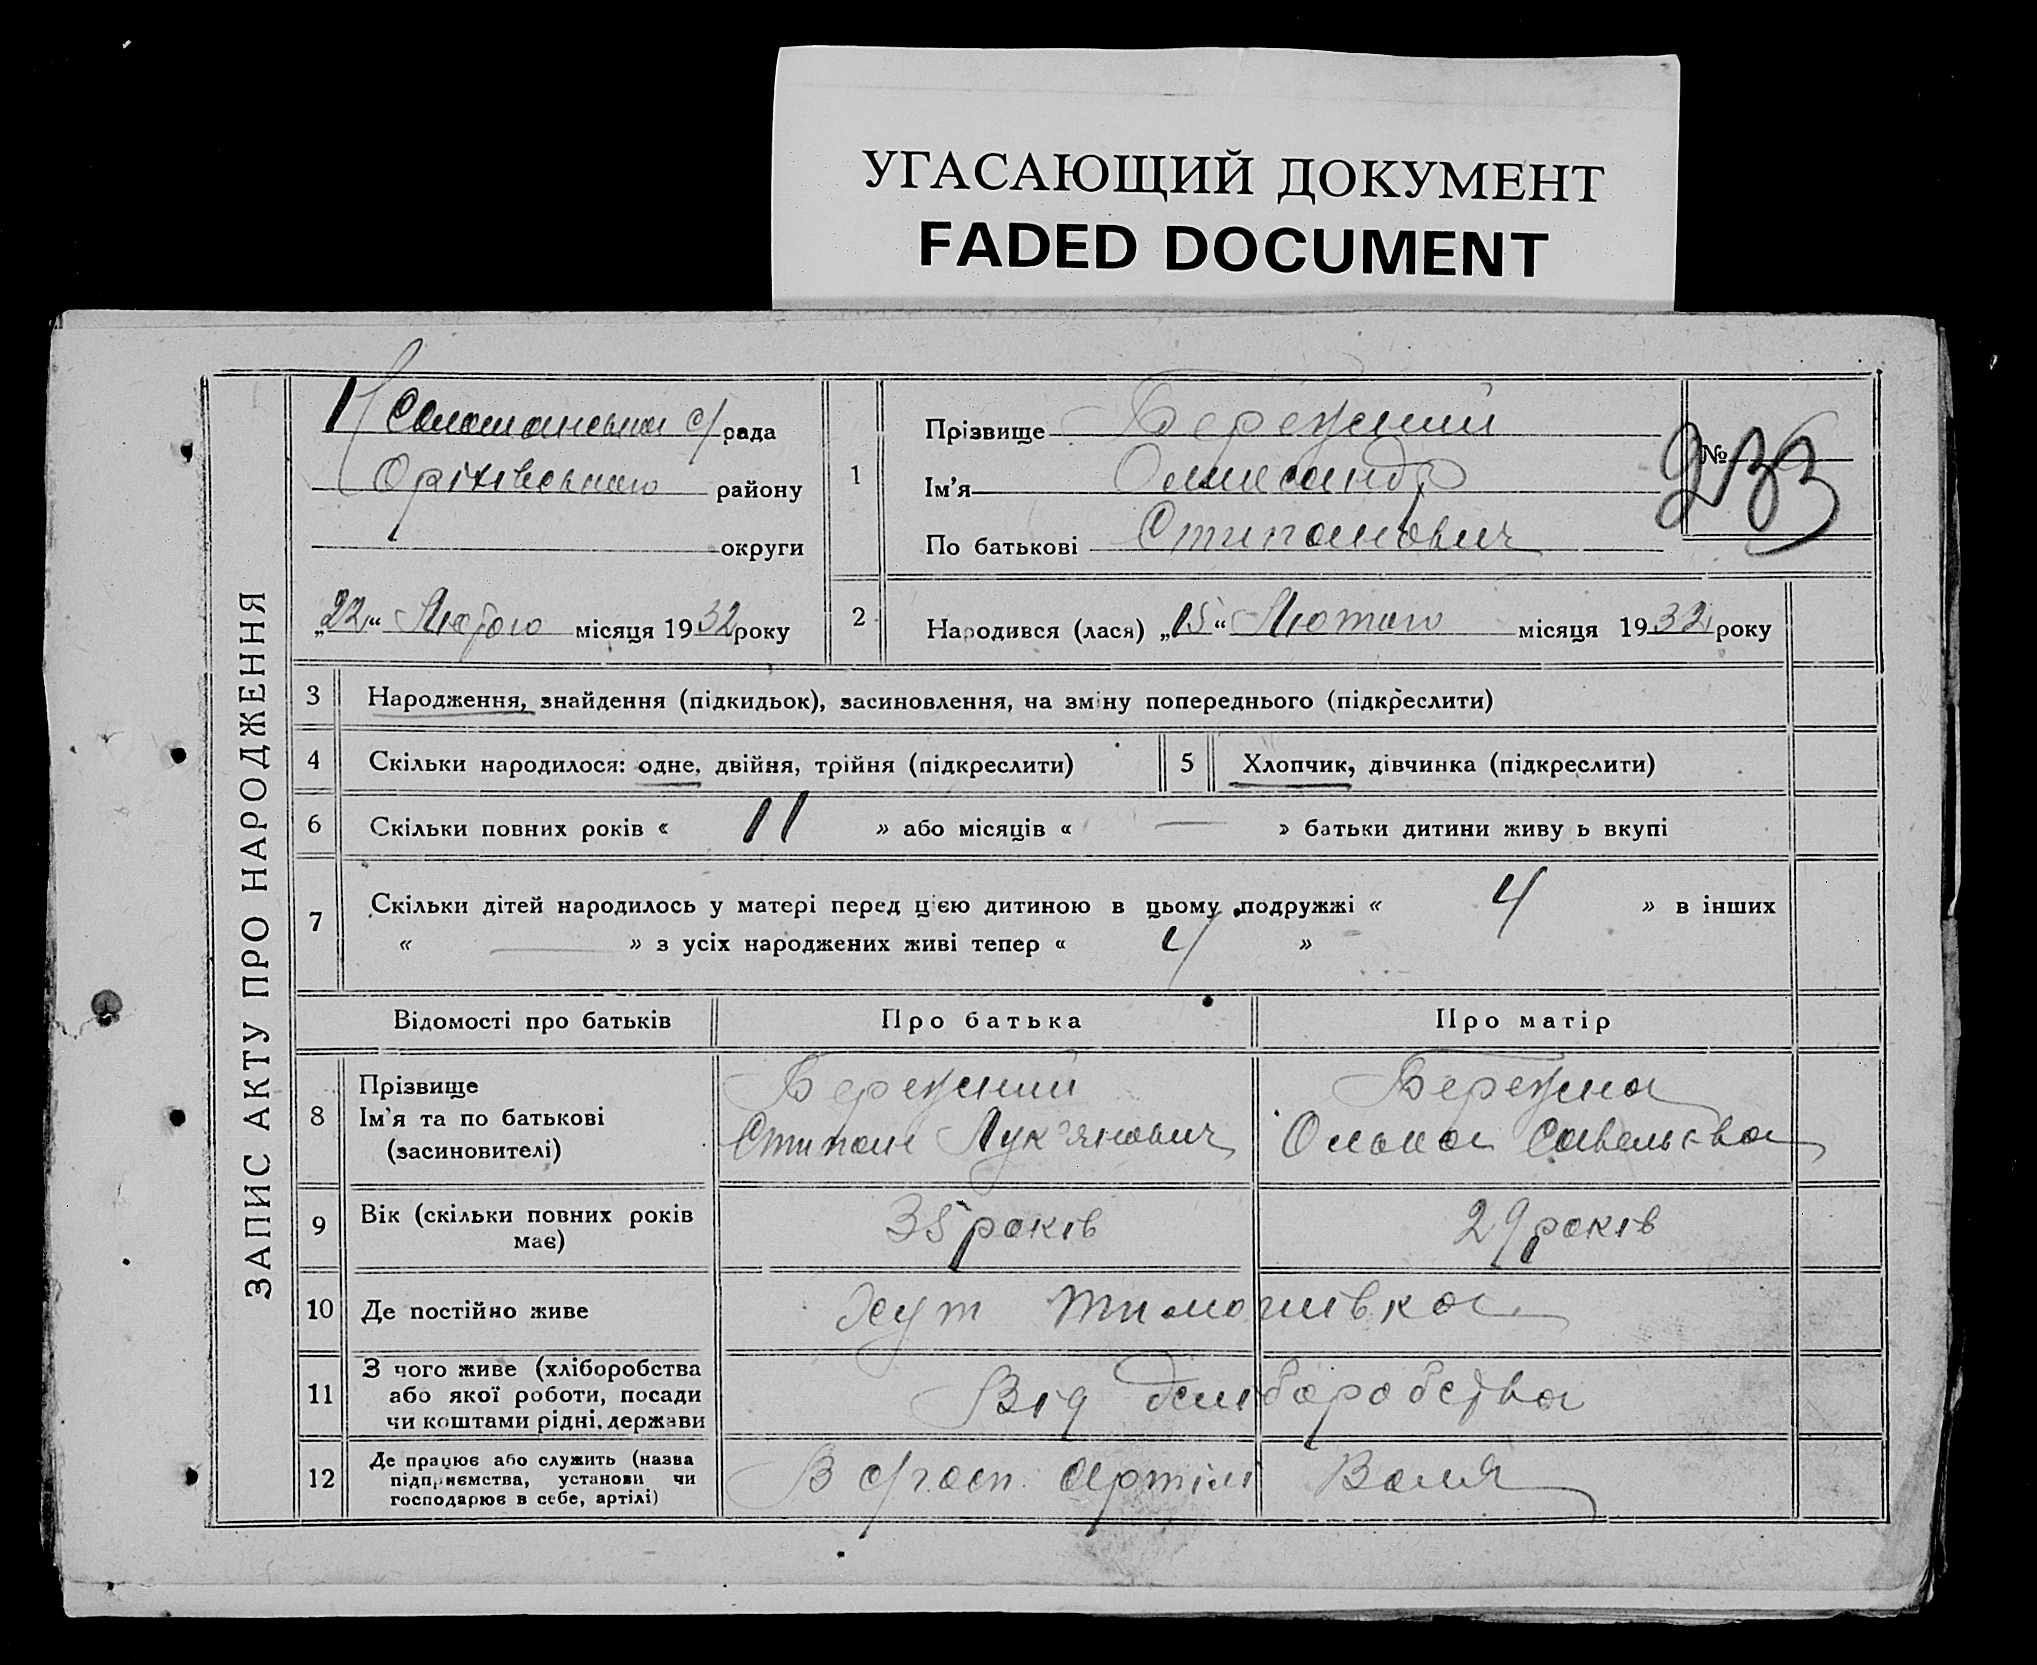 УГАСАЮЩИЙ ДОКУМЕНТ
FADED DOCUMENT
ЗАПИС АКТУ ПРО НАРОДЖЕННЯ
с/рада
Оріхівського району
округи
„22“ Лютого місяця 1932 року
1
Прізвище Бережний
Ім'я Олександр
По батькові Стипанович
№ 233
2
Народився (лася) „15“ Лютого місяця 1932 року
3
Народження, знайдення (підкидьок), засиновлення, на зміну попереднього (підкреслити)
4
Скільки народилося: одне, двійня, трійня (підкреслити)
5
Хлопчик, дівчинка (підкреслити)
6
Скільки повних років « 11 » або місяців « — » батьки дитини живу ь вкупі
7
Скільки дітей народилось у матері перед цією дитиною в цьому подружжі « 4 » в інших
« — » з усіх народжених живі тепер « 4 »
Відомості про батьків
Про батька
Про матір
8
Прізвище
Ім'я та по батькові
(засиновителі)
Бережний
Стипан Лук'янович
Бережна
Ольга Савельєва
9
Вік (скільки повних років
має)
35 років
29 років
10
Де постійно живе
Хут Тимошивка
11
З чого живе (хліборобства
або якої роботи, посади
чи коштами рідні, держави
Від хлиборобства
12
Де працює або служить (назва
підприємства, установи чи
господарює в себе, артілі)
В с/госп. Артілі Воля